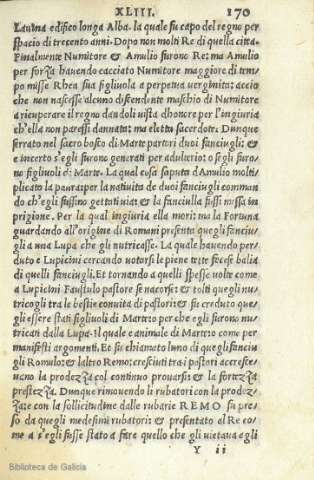 XLIII. 170
Lauina edifico longa Alba. la quale fu capo del regno per
spacio di trecento anni. Dopo non molti Re di quella citta.
Finalmente Numitore & Amulio furono Re: ma Amulio
per forza hauendo cacciato Numitore maggiore di tem/
po misse Rhea sua figliuola a perpetua verginita: accio
che non nascesse alcuno discendente maschio di Numitore
a ricuperare il regno dandoli vista dhonore per l'ingiuria
ch'ella non paressi dannata: ma eletta sacerdote. Dunque
serrato nel sacro bosco di Marte partori duoi fanciugli: &
e incerto s'egli furono generati per adulterio: o s'egli furo/
no figliuoli di Marte. La qual cosa saputa da Amulio molti/
plicato la paura: per la natiuita de duoi fanciugli comman
do ch'egli fussino gettati via: & la fanciulla fussi missa in
prigione. Per la qual ingiuria ella mori: ma la Fortuna
guardando all'origine di Romani presenta quegli fanciu/
gli a una Lupa che gli nutricasse. La quale hauendo per/
duto e Lupicini cercando votarsi le piene tette fecese balia
di quelli fanciugli. Et tornando a quelli spesse volte come
a Lupicini Faustulo pastore se nacorse: & tolti quegli nu/
tricogli tra le bestie conuita di pastori: & fu creduto que/
gli essere stati figliuoli di Martezo per che egli furono nu/
tricati dalla Lupa. Il quale animale di Martezo come per
manifesti argomenti. Et fu chiamato luno di quegli fanciu
gli Romulo: & laltro Remo: cresciuti tra i pastori accresce/
uano la prodezza col continuo prouarsi: & la fortezza
prestezza. Dunque rimouendo li rubatori con la prodez/
zate con la sollicitudine dalle rubarie REMO fu pre/
so da quegli medesimi rubatori: & presentato al Re co/
me a s'egli fusse stato a fare quello che gli vietaua egli
Y ii
Biblioteca de Galicia